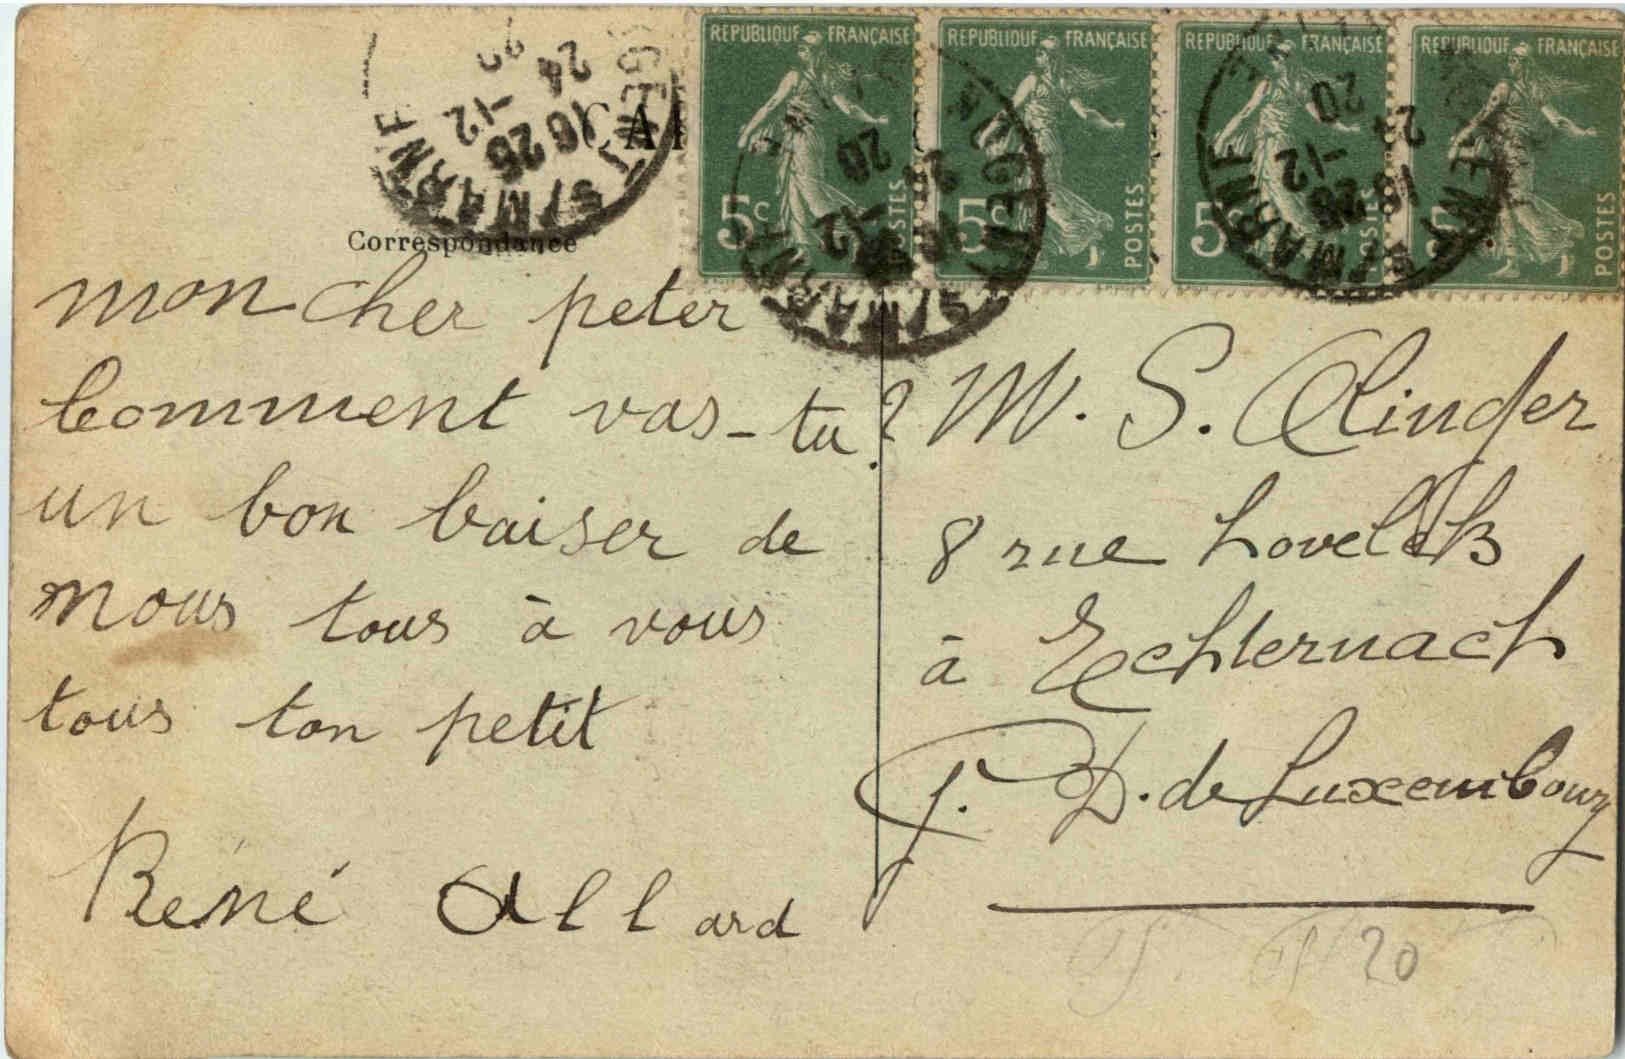 REPUBLIQUE FRANÇAISE
REPUBLIQUE FRANÇAISE
REPUBLIQUE FRANÇAISE
REPUBLIQUE FRANÇAISE
5c POSTES
5c POSTES
5c POSTES
5c POSTES
NOGENT S/MARNE
16 25
24 -12
20
CA
Correspondance
mon cher peter
Comment vas-tu ?
un bon baiser de
nous tous à vous
tous ton petit
Réné Allard
M. S. Clinger
8 rue
à Echternach
G. D. de Luxembourg
20